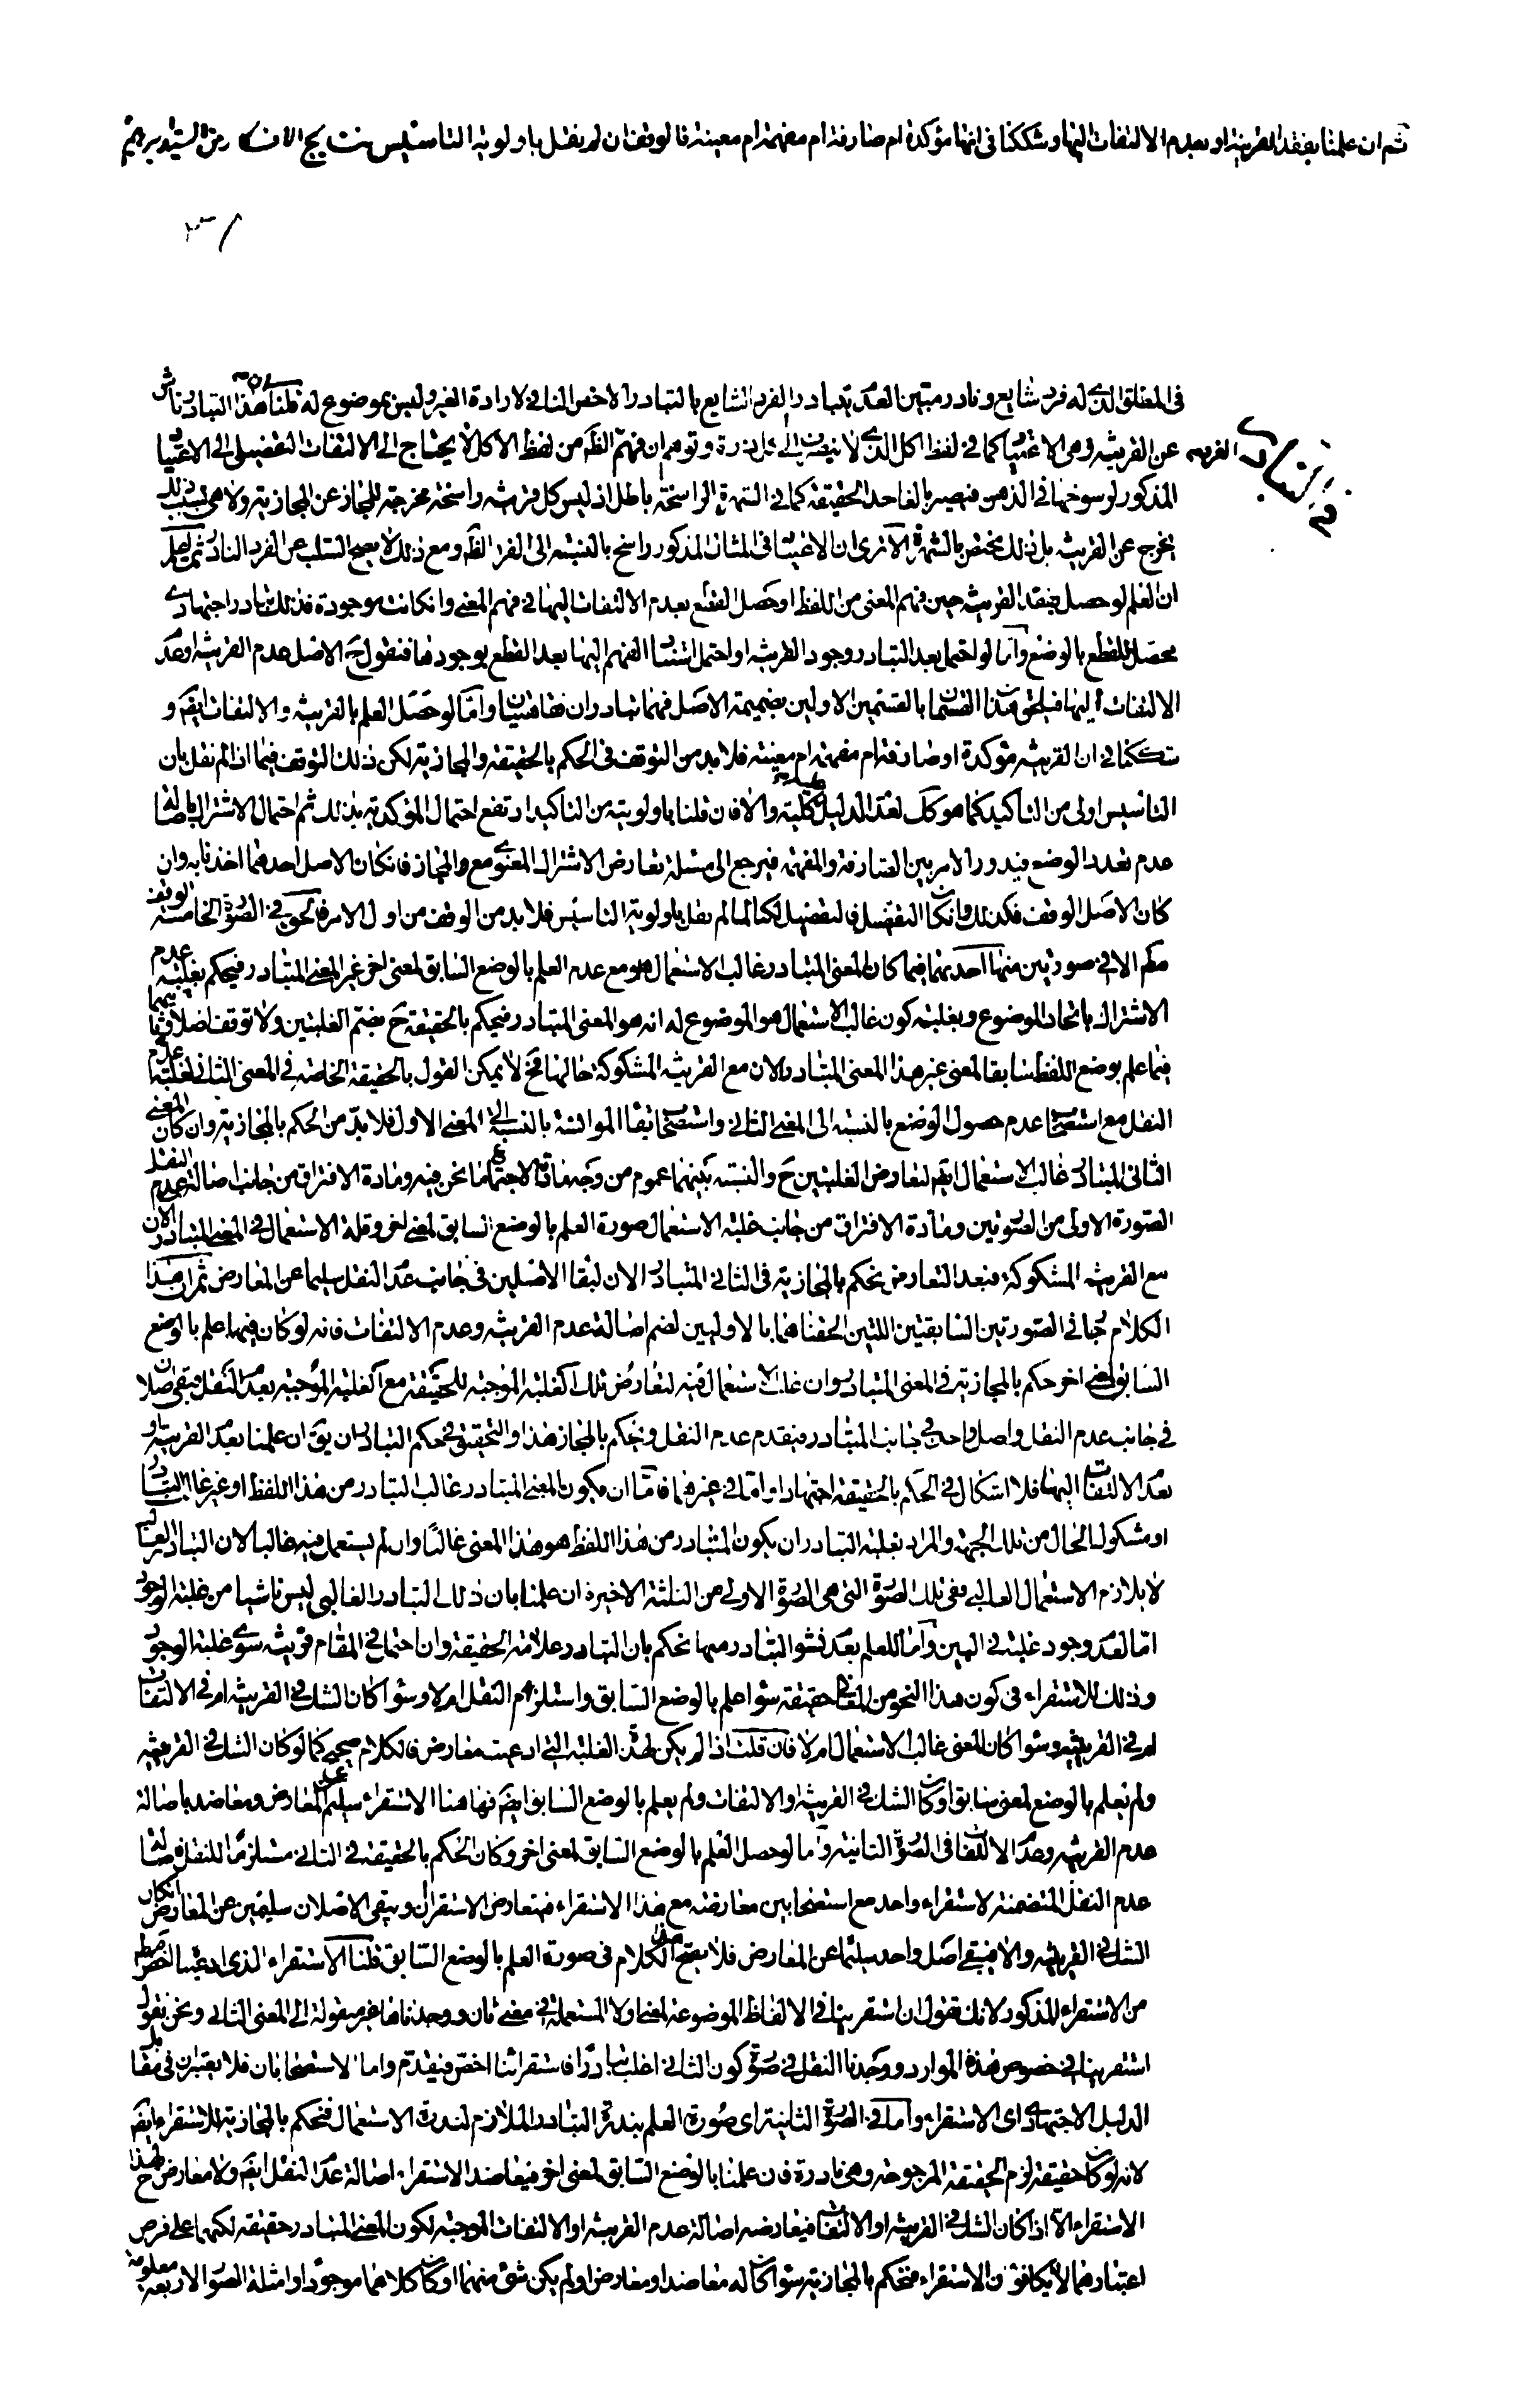 ثم ان علمنا بفقد القرينة او بعدم الالتفات اليها وشككنا فى انها مؤكدة ام صارفة ام مفهمة ام معينة فالوقف ان لم نقل باولوية التاسيس نتايج الافكار من السيد ابرهيم
فى التبادر
فى المطلق الذى له فرد شايع ونادر مبين العدم تبادر الفرد الشايع بالتبادر الاخص النافى لارادة الغير وليس بموضوع له قلنا هذا التبادر ناش
عن القرينة وهى الاغلبية كما فى لفظ اكل الذى لا ينصرف الى وتوهم ان فهم الظم من لفظ الاكل لا يحتاج الى الالتفات التفصيلى الى الاغلبية
المذكور لرسوخها فى الذهن فيصير بالغا حد الحقيقة كما فى الشهرة الراسخة باطل اذ ليس كل قرينة راسخة مخرجة للمجاز عن المجازية ولا هى بسبب ذلك
يخرج عن القرينة بل ذلك مختص بالشهرة الا ترى ان الاغلبية فى المثال المذكور راسخ بالنسبة الى الفرد الظم ومع ذلك لا يصح السلب عن الفرد النادر ثم اعلم
ان العلم لو حصل بفقد القرينة حين فهم المعنى من اللفظ او حصل القطع بعدم الالتفات اليها فى فهم المعنى وان كانت موجودة فذلك تبادر اجتهادى
محصل للقطع بالوضع واما لو احتمل بعد التبادر وجود القرينة او احتمل استناد الفهم اليها بعد القطع بوجودها فنقول ح الاصل عدم القرينة او عدم
الالتفات اليها فيلحق هذا القسمان بالقسمين الاولين بضميمة الاصل فهما تبادران فقاهتيان واما لو حصل العلم بالقرينة والالتفات ايضا و
شككنا فى ان القرينة مؤكدة او صارفة ام مفهمة ام معينة فلا بد من التوقف فى الحكم بالحقيقة والمجازية لكن ذلك التوقف فيما اذا لم نقل بان
التاسيس اولى من التاكيد كما هو كك لعدم الدليل عليه كلية والا فان قلنا باولويته من التاكيد ارتفع احتمال المؤكدية بذلك ثم احتمال الاشتراك باصالة
عدم تعدد الوضع فيدور الامر بين الصارفة والمفهمة فيرجع الى مسئلة تعارض الاشتراك المعنوى مع المجاز فان كان الاصل احدهما اخذنا به وان
كان الاصل الوقف فكذلك وان كان التفصيل فالتفصيل لكنا لما لم نقل باولوية التاسيس فلا بد من الوقف من اول الامر فالحق فى الصورة الخامسة الوقف
مطم الا فى صورتين منها احدهما فيما كان المعنى المتبادر غالب الاستعمال هو مع عدم العلم بالوضع السابق لمعنى اخر غير المعنى المتبادر فيحكم بغلبة عدم
الاشتراك باتحاد الموضوع وبغلبة كون غالب الاستعمال هو الموضوع له انه هو المعنى المتبادر فيحكم بالحقيقة ح بضم الغلبتين ولا توقف اصلا وثانيهما
فيما علم بوضع اللفظ سابقا لمعنى غير هذا المعنى المتبادر الان مع القرينة المشكوكة حالها فح لا يمكن القول بالحقيقة الخاصة فى المعنى الثانى لغلبة عدم
النقل مع استصحاب عدم حصول الوضع بالنسبة الى المعنى الثانى واستصحاب بقاء الموانسة بالنسبة الى المعنى الاول فلا بد من الحكم بالمجازية وان كان المعنى
الثانى المتبادر غالب الاستعمال ايضا لتعارض الغلبتين ح والنسبة بينهما عموم من وجه مادة الاجتماع ما نحن فيه ومادة الافتراق من جانب اصالة عدم النقل
الصورة الاولى من الصورتين ومادة الافتراق من جانب غلبة الاستعمال صورة العلم بالوضع السابق لمعنى اخر وقلة الاستعمال فى المعنى المتبادر الان
مع القرينة المشكوكة فبعد التعارض يحكم بالمجازية فى الثانى المتبادر الان لبقاء الاصلين فى جانب عدم النقل سليما عن المعارض ثم ان هذا
الكلام يجئ فى الصورتين السابقتين اللتين الحقناهما بالاوليين لضم اصالة عدم القرينة وعدم الالتفات فانه لو كان فيهما علم بالوضع
السابق لمعنى اخر حكم بالمجازية فى المعنى المتبادر وان غلب الاستعمال فيه لتعارض تلك الغلبة الموجبة للحقيقة مع الغلبة الموجبة لعدم النقل فيبقى اصلان
فى جانب عدم النقل واصل واحد فى جانب المتبادر فيقدم عدم النقل ونحكم بالمجاز هذا والتحقيق فى حكم التبادر ان يق ان علمنا بعدم القرينة او
بعدم الالتفات اليها فلا اشكال فى الحكم بالحقيقة اجتهادا واما فى غيرهما فاما ان يكون المعنى المتبادر غالب التبادر من هذا اللفظ او غير غالب التبادر
او مشكوك الحال من تلك الجهة والمراد بغلبة التبادر ان يكون المتبادر من هذا اللفظ هو هذا المعنى غالبا وان لم يستعمل فيه غالبا لان التبادر الغالبى
لا يلازم الاستعمال الغالبى ففى تلك الصورة التى هى الصورة الاولى من الثلثة الاخيرة ان علمنا بان ذلك التبادر الغالبى ليس ناشيا من غلبة الوجود
اما لعدم وجود غلبة فى البين واما للعلم بعدم نشو التبادر منها نحكم بان التبادر علامة الحقيقة وان احتمل فى المقام قرينة سوى غلبة الوجود
وذلك للاستقراء فى كون هذا النحو من المعنى حقيقة سواء علم بالوضع السابق واستلزم النقل ام لا وسواء كان الشك فى القرينة ام فى الالتفات
ام فى القرينية وسواء كان المعنى غالب الاستعمال ام لا فان قلت اذا لم يكن لهذه الغلبة التى ادعيت معارض فالكلام صحيح كما لو كان الشك فى القرينية
ولم نعلم بالوضع لمعنى سابق او كان الشك فى القرينة او الالتفات ولم يعلم بالوضع السابق ايضا فهاهنا الاستقراء سليم عن المعارض ومعاضد باصالة
عدم القرينة وعدم الالتفات فى الصورة الثانية واما لو حصل العلم بالوضع السابق لمعنى اخر وكان الحكم بالحقيقة فى الثانى مستلزما للنقل فاصالة
عدم النقل المتضمنة لاستقراء واحد مع استصحابين معارضة مع هذا الاستقراء فيتعارض الاستقرائان ويبقى الاصلان سليمين عن المعارض ان كان
الشك فى القرينية والا فيبقى اصل واحد سليما عن المعارض فلا يصح هذا الكلام فى صورة العلم بالوضع السابق قلنا الاستقراء الذى ادعينا اخص مطم
من الاستقراء المذكور لانك تقول ان استقرينا فى الالفاظ الموضوعة لمعنى ولا المستعملة فى معنى ثان ووجدناها غير منقولة الى المعنى الثانى ونحن نقول
استقرينا فى خصوص هذه الموارد ووجدنا النقل فى صورة كون الثانى اغلب تبادرا فاستقرائنا اخص فيقدم واما الاستصحابان فلا يعتبران فى مقابل
الدليل الاجتهادى اى الاستقراء واما فى الصورة الثانية اى صورة العلم بندرة التبادر الملازم لندرة الاستعمال فنحكم بالمجازية للاستقراء ايضا
لانه لو كان حقيقة لزم الحقيقة المرجوحة وهى نادرة فان علمنا بالوضع السابق لمعنى اخر فيعاضد الاستقراء اصالة عدم النقل ايضا ولا معارض لهذا ح
الاستقراء الا اذا كان الشك فى القرينة او الالتفات فيعارضه اصالة عدم القرينة او الالتفات الموجبة لكون المعنى المتبادر حقيقة لكنهما على فرض
اعتبارهما لا يكافئان الاستقراء فنحكم بالمجازية سواء كان له معاضد او معارض او لم يكن شئ منهما او كان كلاهما موجودا وامثلة الصور الاربعة معلومة